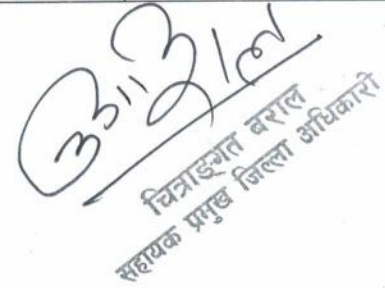 चित्राङ्गत बराल
सहायक प्रमुख जिल्ला अधिकारी